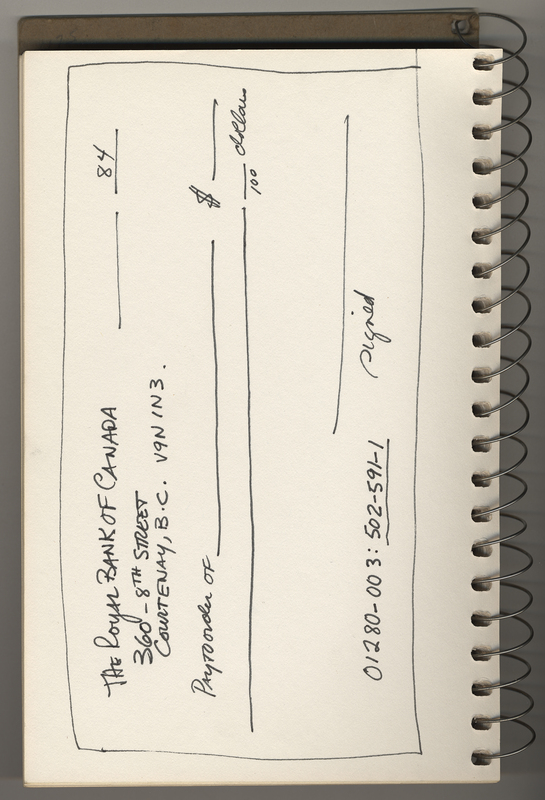 THE ROYAL BANK OF CANADA
360 - 8TH STREET
COURTENAY, B.C. V9N 1N3.
84
Pay to order of $
100 dollars
01280-003: 502-591-1
signed